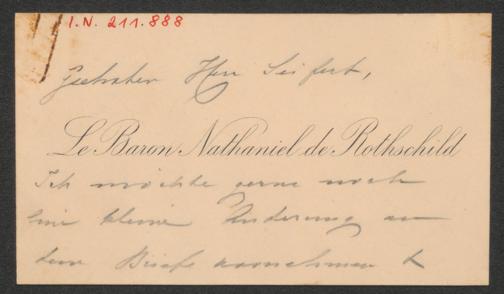 I.N. 211.888
Geehrter Herr Seifert,
Le Baron Nathaniel de Rothschild
Ich möchte gerne noch
eine kleine Änderung an
dem Briefe vornehmen &